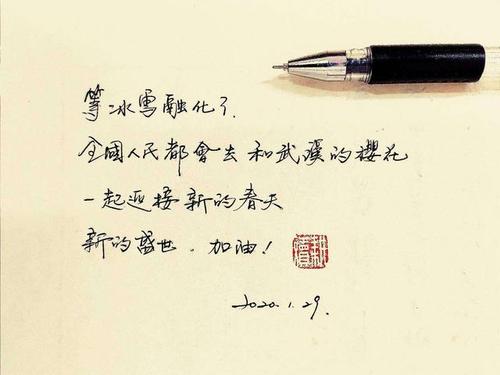 等冰雪融化了.
全國人民都會去和武漢的櫻花
一起迎接新的春天
新的盛世.加油!
2020.1.29.